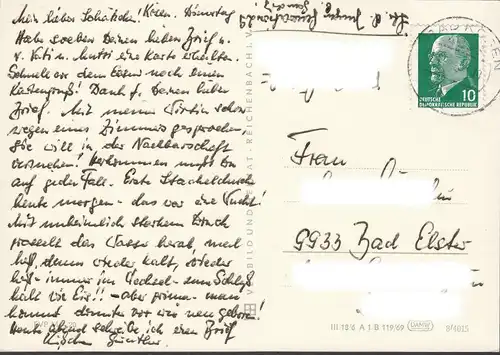 Mein liebes Schätzchen! Küssen. Dienstag
Habe soeben Deinen lieben Brief u.
v. Vati u. Mutti eine Karte erhalten.
Schnell vor dem Essen noch einen
Kartengruß! Dank f. Deinen lieben
Brief. Mit meiner Wirtin schon
wegen eines Zimmers gesprochen,
Sie will in der Nachbarschaft
versuchen! Herkommen mußt Du
auf jeden Fall. Erste Stacheldusche
heute morgen - das war eine Wucht!
Mit unheimlich starkem Druck
prasselt das Wasser herab, mal
heiß, dann wieder kalt, wieder
heiß - immer im Wechsel - zum Schluß
kalt wie Eis!! - aber prima - man
kommt darunter vor wie neu geboren!
Heute abend schreibe ich einen Brief
Küßchen Günther.
VEB BILD UND HEIMAT REICHENBACH I. V.
DEUTSCHE
DEMOKRATISCHE REPUBLIK
10
Frau
9933 Bad Elster
III 18 6 A 1 B 119/69
9/4015